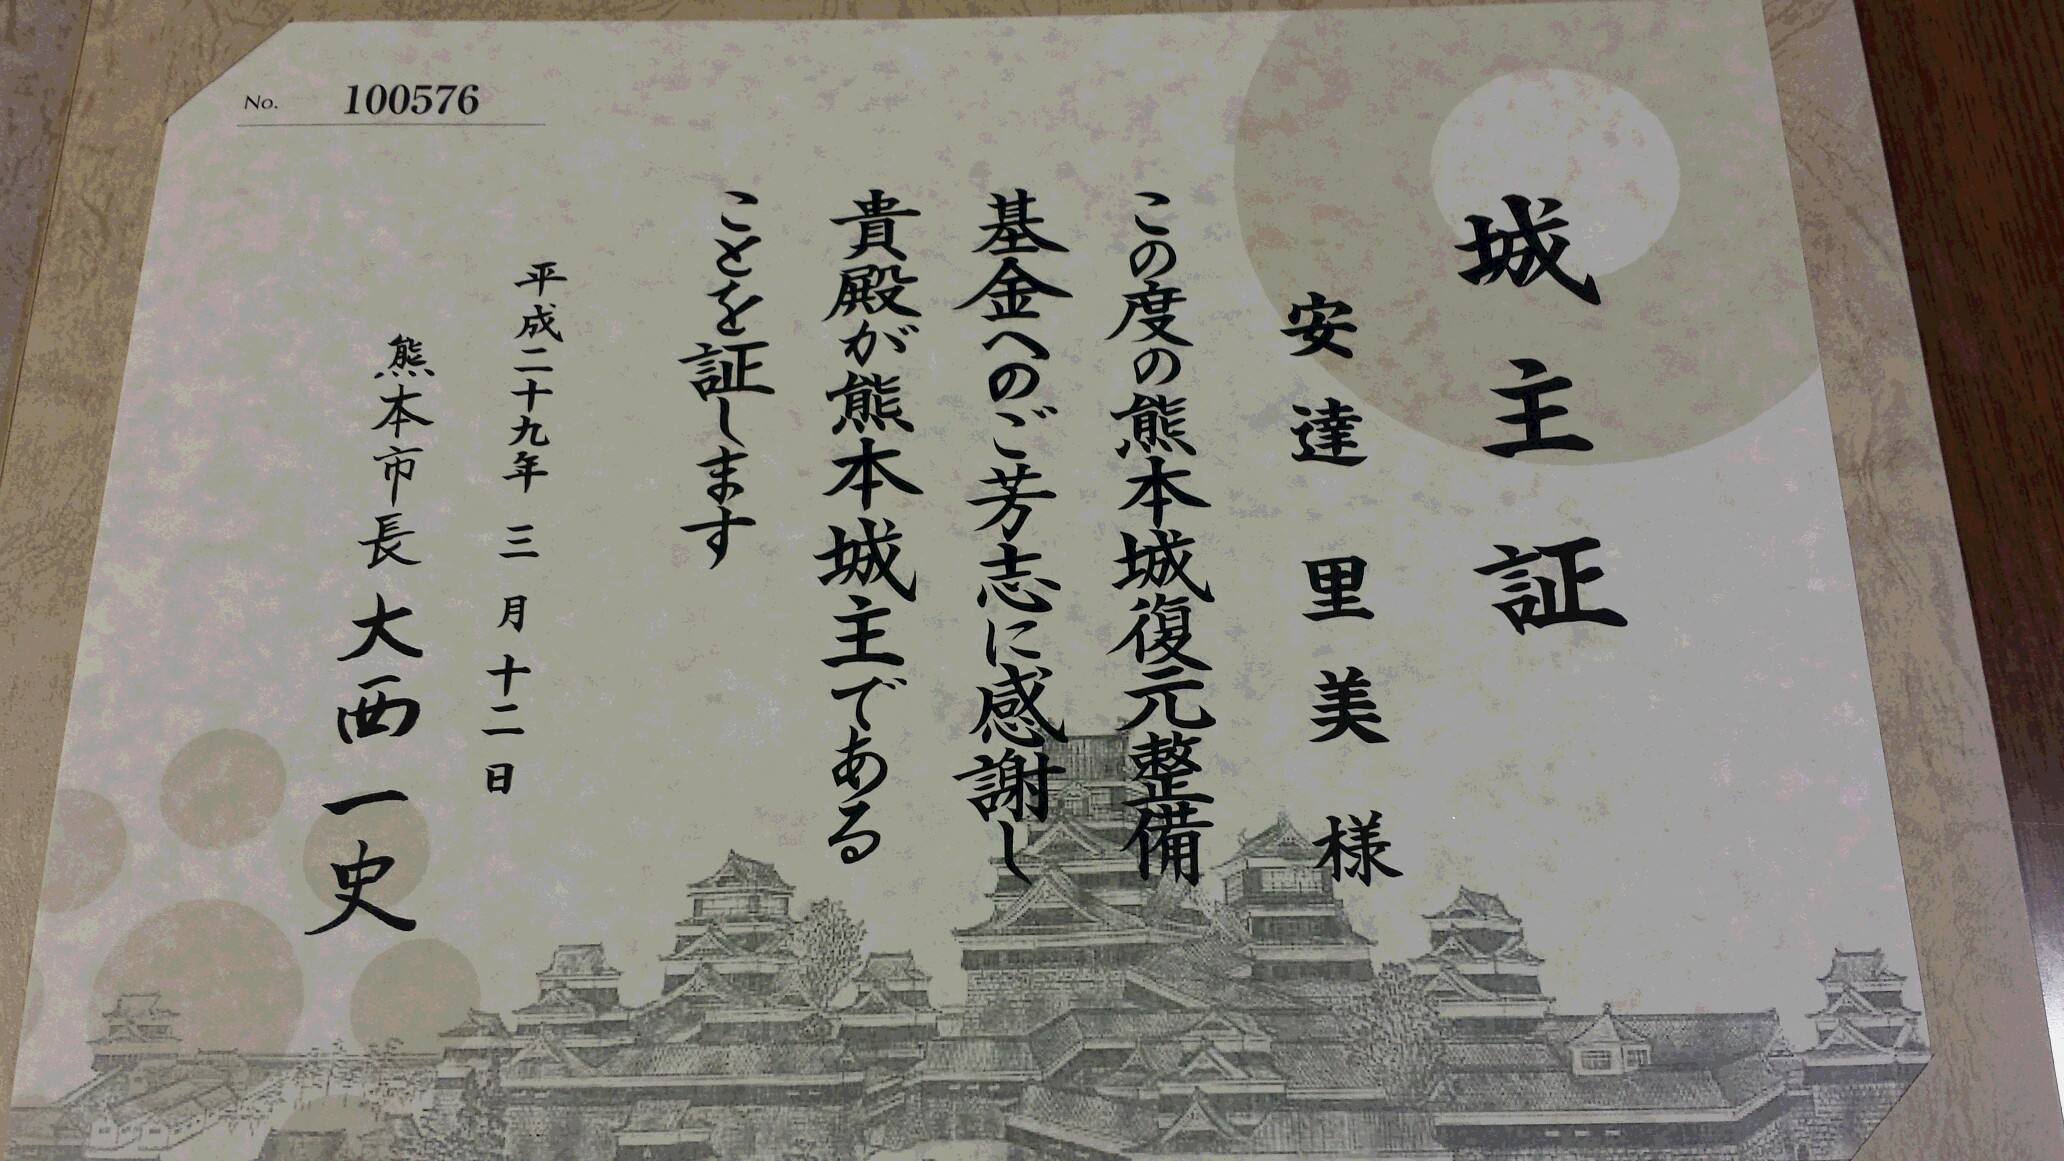 No. 100576
城主証
安達里美様
この度の熊本城復元整備
基金へのご芳志に感謝し
貴殿が熊本城主である
ことを証します
平成二十九年三月十二日
熊本市長大西一史